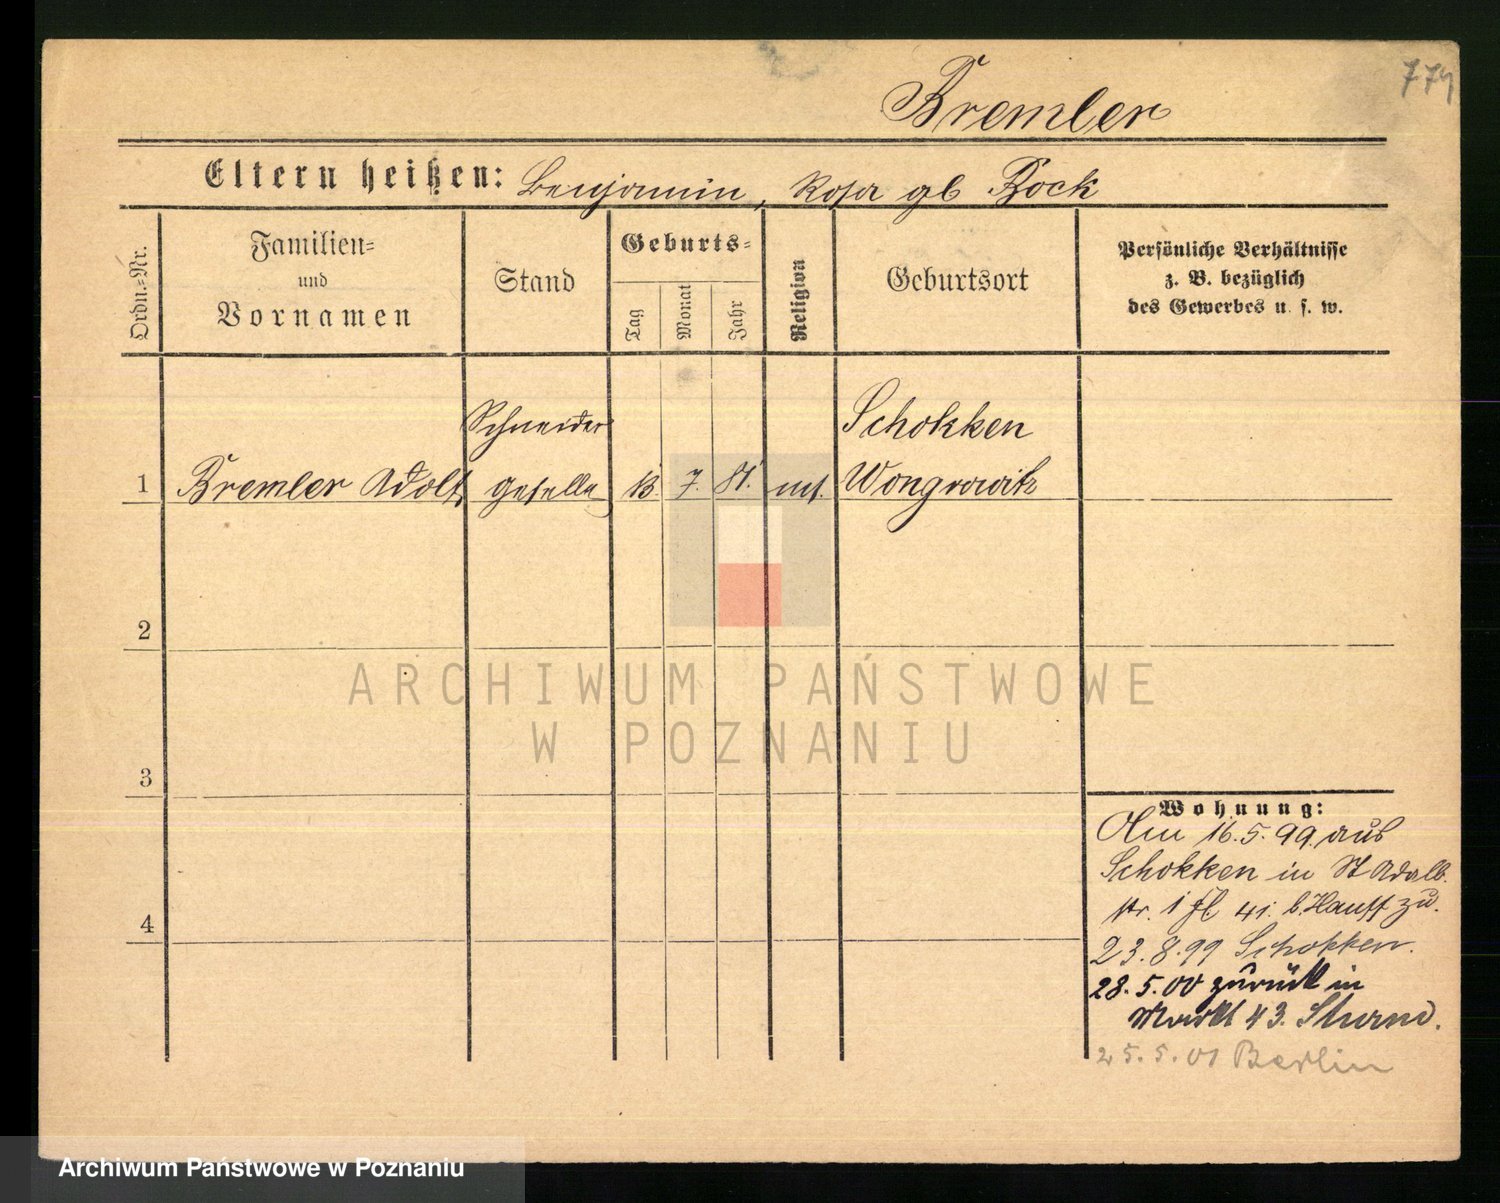 774
Bremler
Eltern heißen: Benjamin, Rosa gb Bock
Ordn.=Nr.
Familien=
und
Vornamen
Stand
Geburts=
Tag
Monat
Jahr
Religion
Geburtsort
Persönliche Verhältnisse
z. B. bezüglich
des Gewerbes u. s. w.
Schneider Schokken
1 Bremler Adolf geselle 13. 7. 81. Wongrowitz
2
3
4
Wohnung:
Am 16.5.99 aus
Schokken in St Adalb.
str. 1 41. b. Hauff zu.
23.8.99 Schokken.
28.5.00 zurück in
Markt 43.
25.5.01 Berlin
ARCHIWUM PAŃSTWOWE
W POZNANIU
Archiwum Państwowe w Poznaniu